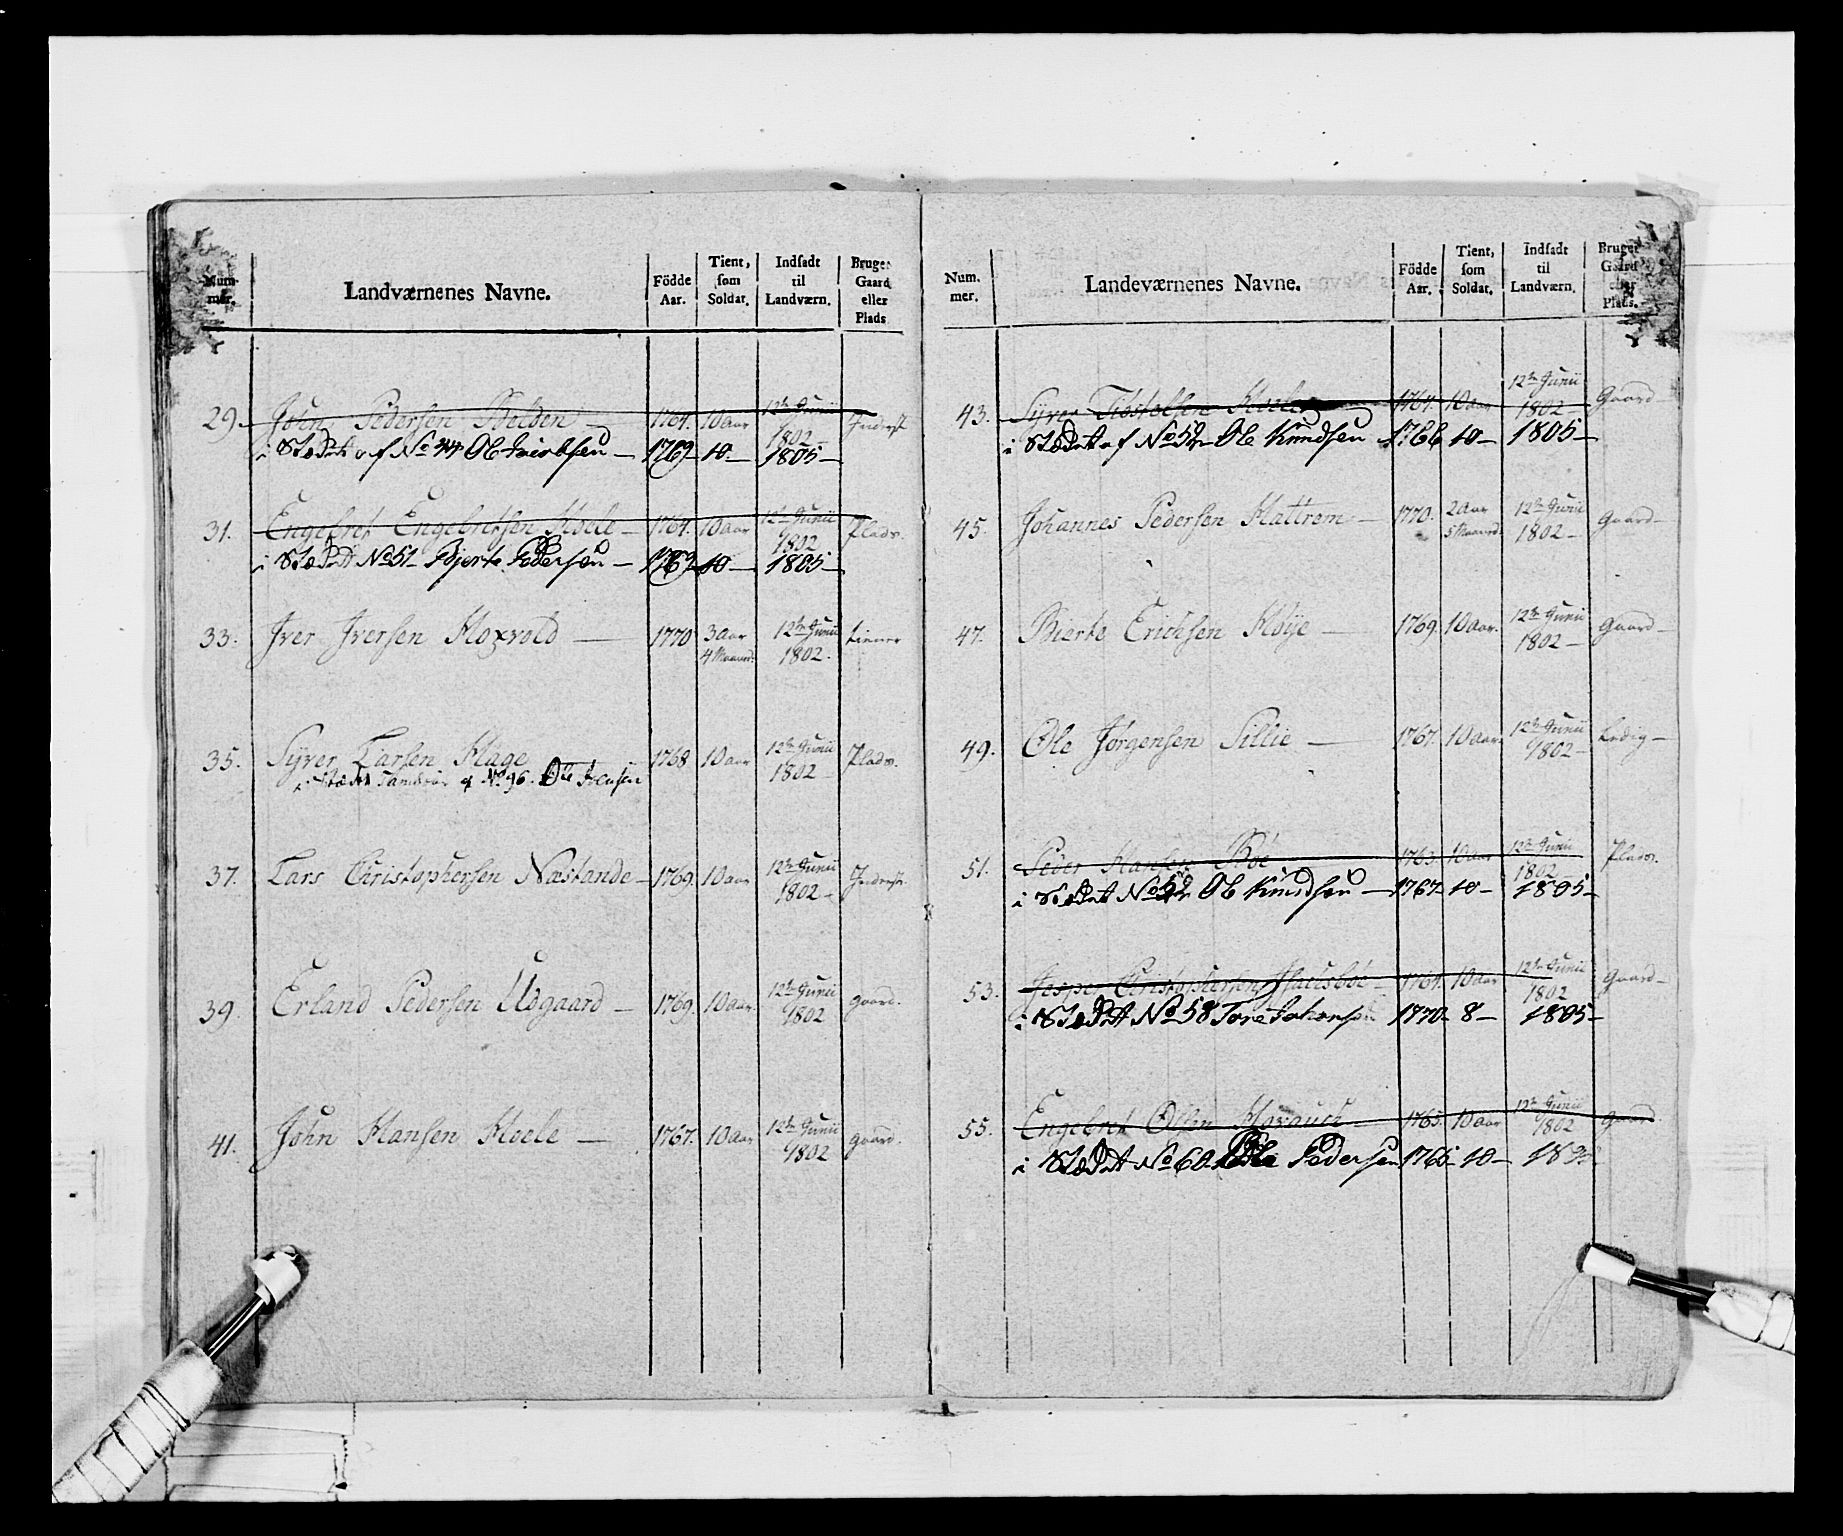 Num- mer. | Landværnenes Navne. | Födde Aar. | Tient, som Soldat. | Indsadt til Landværn. | Bruger Gaard eller Plads
29. John Pedersen 1764. 10 Aar 12te Junii 1802 Inderst
i Stædet af No 44 Ole 1769 10 1805
31. Engebret Engebretsen Hoele 1764. 10 Aar 12te Junii 1802 Plads.
i Stædet No 51 Bjerte Pedersen 1763 10 1805
33. Iver Iversen Hoxvold 1770 3 Aar 4 Maaned. 12te Junii 1802. tiener
35. Syver Larsen Hage 1768 10 Aar 12te Junii 1802 Plads.
i Stædet af No 96. Ole Jensen
37. Lars Christophersen Næstande 1769 10 Aar 12te Junii 1802 Inderst.
39. Erland Pedersen Udgaard 1769. 10 Aar. 12te Junii 1802 gaard.
41. John Hansen Hoele 1767. 10 Aar 12te Junii 1802 gaard.
Num. mer. | Landeværnenes Navne. | Födde Aar. | Tient, som Soldat. | Indsadt til Landværn. | Bruger Gaard eller Plads.
43. Syver Tostelsen Hoele 1764. 10 Aar 12te Junii 1802 Gaard
i Stædet af No 52 Ole Knudsen 1766 10 1805
45. Johannes Pedersen Hattrem 1770. 2 Aar 5 Maaned. 12te Junii 1802 Gaard
47. Bierte Erichsen Höye 1769. 10 Aar. 12te Junii 1802 Gaard
49. Ole Jörgensen Sillie 1767. 10 Aar 12te Junii 1802 Ledig
51. Peder Hansen Böe 1763. 10 Aar 12te Junii 1802 Plads.
i Stædet No 52 Ole Knudsen 1767 10 1805
53. Jesper Christophersen 1764. 10 Aar 12te Junii 1802 Gaard
i Stædet No 58 Tore Johansen 1770 8 1805
55. Engebret Olsen 1765. 10 Aar 12te Junii 1802 Gaard
i Stædet No 60 Ole Pedersen 1766 10